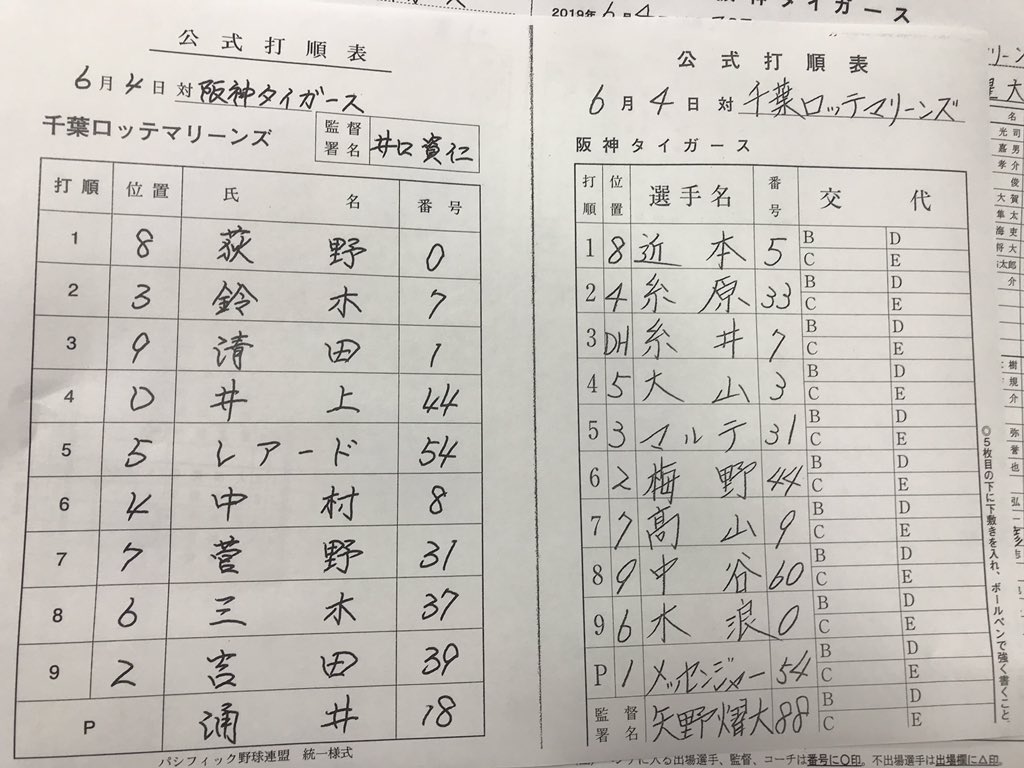 2019年6月4日
阪神タイガース
公式打順表
6月4日 対 阪神タイガース
千葉ロッテマリーンズ
監督署名 井口資仁
打順 位置 氏名 番号
1 8 荻野 0
2 3 鈴木 7
3 9 清田 1
4 D 井上 44
5 5 レアード 54
6 4 中村 8
7 7 菅野 31
8 6 三木 37
9 2 吉田 39
P 涌井 18
パシフィック野球連盟 統一様式
公式打順表
6月4日 対 千葉ロッテマリーンズ
阪神タイガース
打順 位置 選手名 番号 交代
1 8 近本 5 B D
C E
2 4 糸原 33 B D
C E
3 DH 糸井 7 B D
C E
4 5 大山 3 B D
C E
5 3 マルテ 31 B D
C E
6 2 梅野 44 B D
C E
7 7 髙山 9 B D
C E
8 9 中谷 60 B D
C E
9 6 木浪 0 B D
C E
P 1 メッセンジャー 54 B D
C E
監督署名 矢野燿大 88 B D
C E
◎5枚目の下に下敷きを入れ、ボールペンで強く書くこと。
ベンチに入る出場選手、監督、コーチは番号に〇印。不出場選手は出場欄に△印。